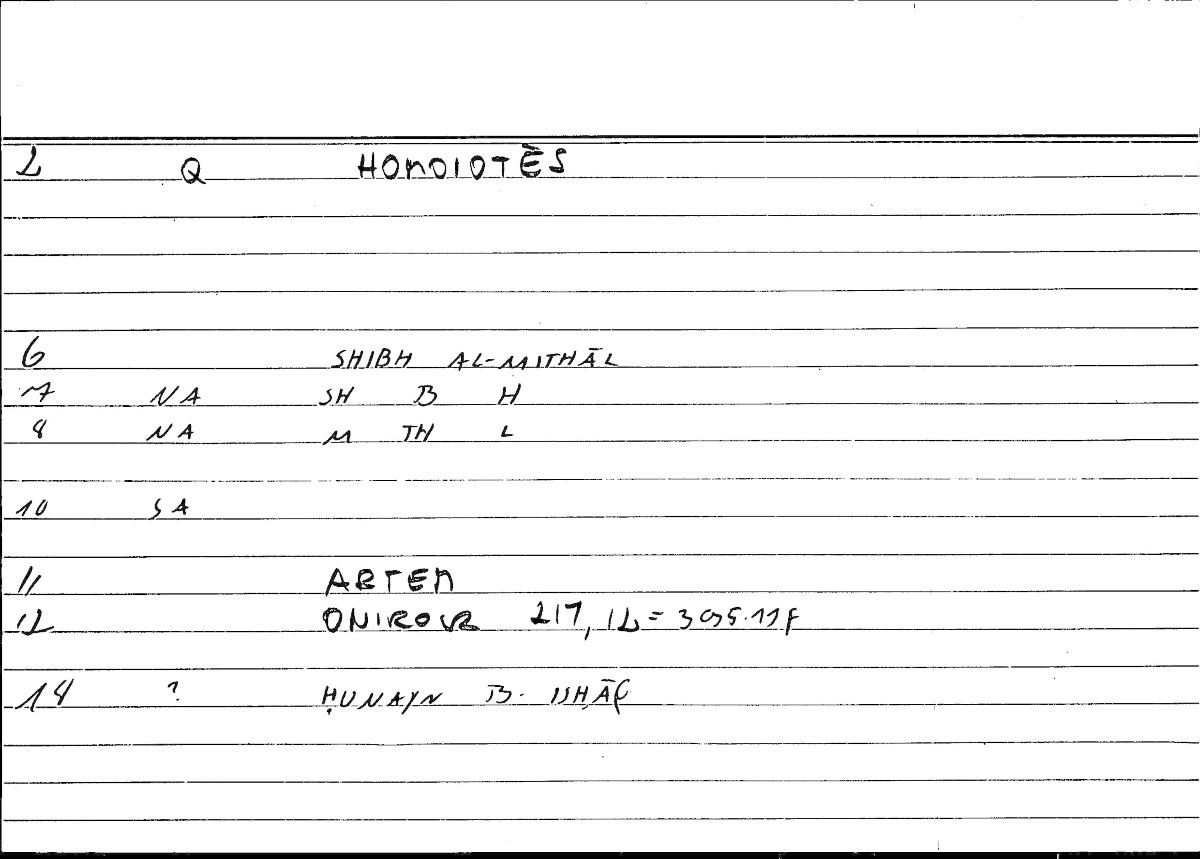 2 Q HOMOIOTĒS
6 SHIBH AL-MITHĀL
7 NA SH B H
8 NA M TH L
10 SA
11 ARTEM
12 ONIROCR 217, 12 = 395.11 f
14 ? ḤUNAYN B. ISḤĀQ